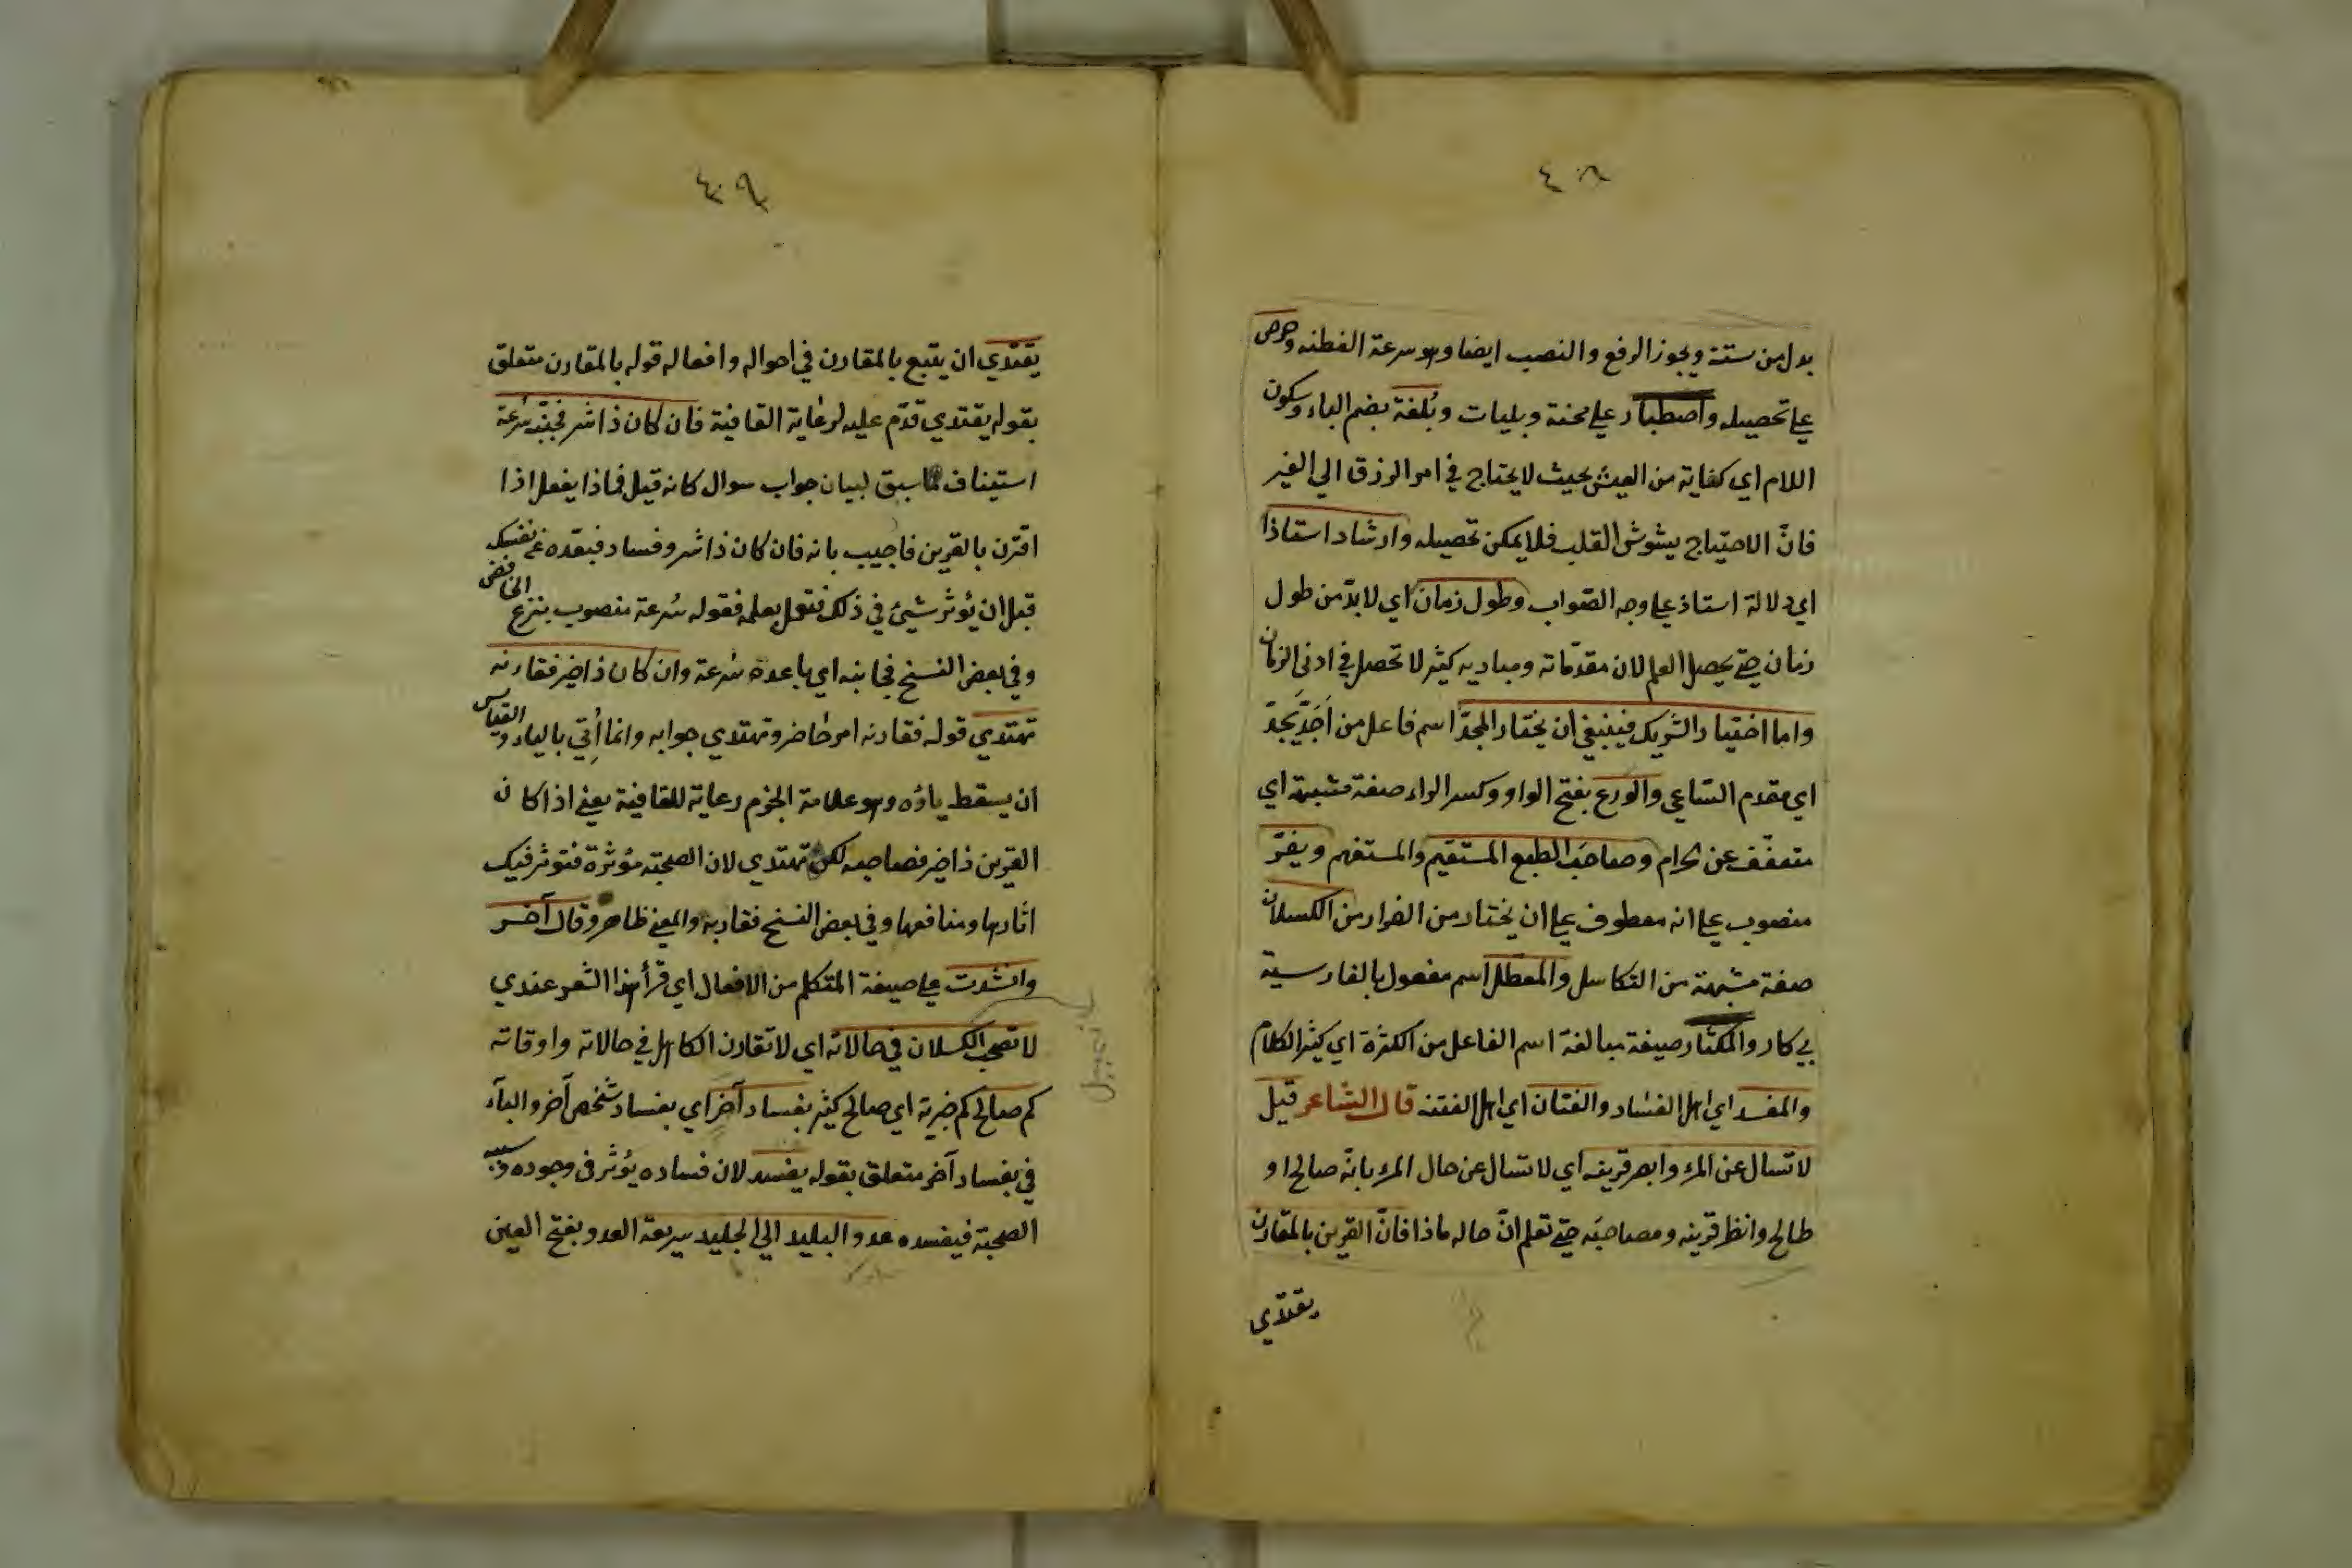 ٤٠٨
بدل من ستة ويجوز الرفع والنصب ايضا وهو سرعة الفطنه وحرص
على تحصيله واصطبار على محنة وبليات وبُلغة بضم الباء وسكون
اللام اي كفاية من العيش بحيث لا يحتاج في امر الرزق الي الغير
فانّ الاحتياج يشوش القلب فلا يمكن تحصيله وارشاد استاذا
اي دلالة استاذ على وجه الصّواب وطول زمان اي لا بدّ من طول
زمان حتي يحصل العلم لان مقدّماته ومباديه كثير لا تحصل في ادنى الزمان
واما اختيار الشريك فينبغي ان يختار المجدّ اسم فاعل من اَجَدَّ يجدّ
اي مقدم السّاعي والورع بفتح الواو وكسر الراء صفة مشبهة اي
متعفّف عن الحرام وصاحب الطبع المستقيم والمستفهم ويفرّ
منصوب على انه معطوف على ان يختار من الفرار من الكسلان
صفة مشبهة من التكاسل والمعطل اسم مفعول بالفارسية
بي كار والمكثار صيغة مبالغة اسم الفاعل من الكثرة اي كثير الكلام
والمفسد اي اهل الفساد والفتان اي اهل الفتنه قال الشاعر قيل
لا تسال عن المرء وابصر قرينه اي لا تسال عن حال المرء بانّه صالح او
طالح وانظر قرينه ومصاحبَه حتي تعلم انّ حاله ماذا فانّ القرين بالمقارن
يقتدي
٤٠٩
يقتدي ان يتبع بالمقارن في احواله وافعاله قوله بالمقارن متعلق
بقوله يقتدي قدّم عليه لرعاية القافية فان كان ذا شر فجنّبه سُرعة
استيناف مما سبق لبيان جواب سوال كانه قيل فماذا يفعل اذا
اقترن بالقرين فاجيب بانه فان كان ذا شر وفساد فبعّده عن نفسك
قبل ان يُؤثر شيئ في ذلك فتعمل بعلمه فقوله سُرعة منصوب بنزع الخافض
وفي بعض النسخ فجانبه اي باعده سُرعة وان كان ذا خير فقارنه
تهتدي قوله فقارنه امر حاضر وتهتدي جوابه وانما اُتِي بالياء والقياس
ان يسقط ياؤه وهو علامة الجزم رعاية للقافية يعني اذا كان
القرين ذا خير فصاحبه لكي تهتدي لان الصحبته مؤثرة فتوثر فيك
اثارها ومنافعها وفي بعض النسخ فقاربه والمعني ظاهر وقال آخر
وانشدت على صيغة المتكلم من الافعال اي قرأ هذا الشعر عندي
لا تصحب الكسلان في حالاته اي لا تقارن الكاهل في حالاته واوقاته
كم صالح كم خبرية اي صالح كثير بفساد آخر اي بفساد شخص آخر والبآء
في بفساد آخر متعلق بقوله يفسد لان فساده يُؤثر في وجوده بسبب
الصحبته فيفسده عدو البليد الي الجليد سريعة العدو بفتح العين